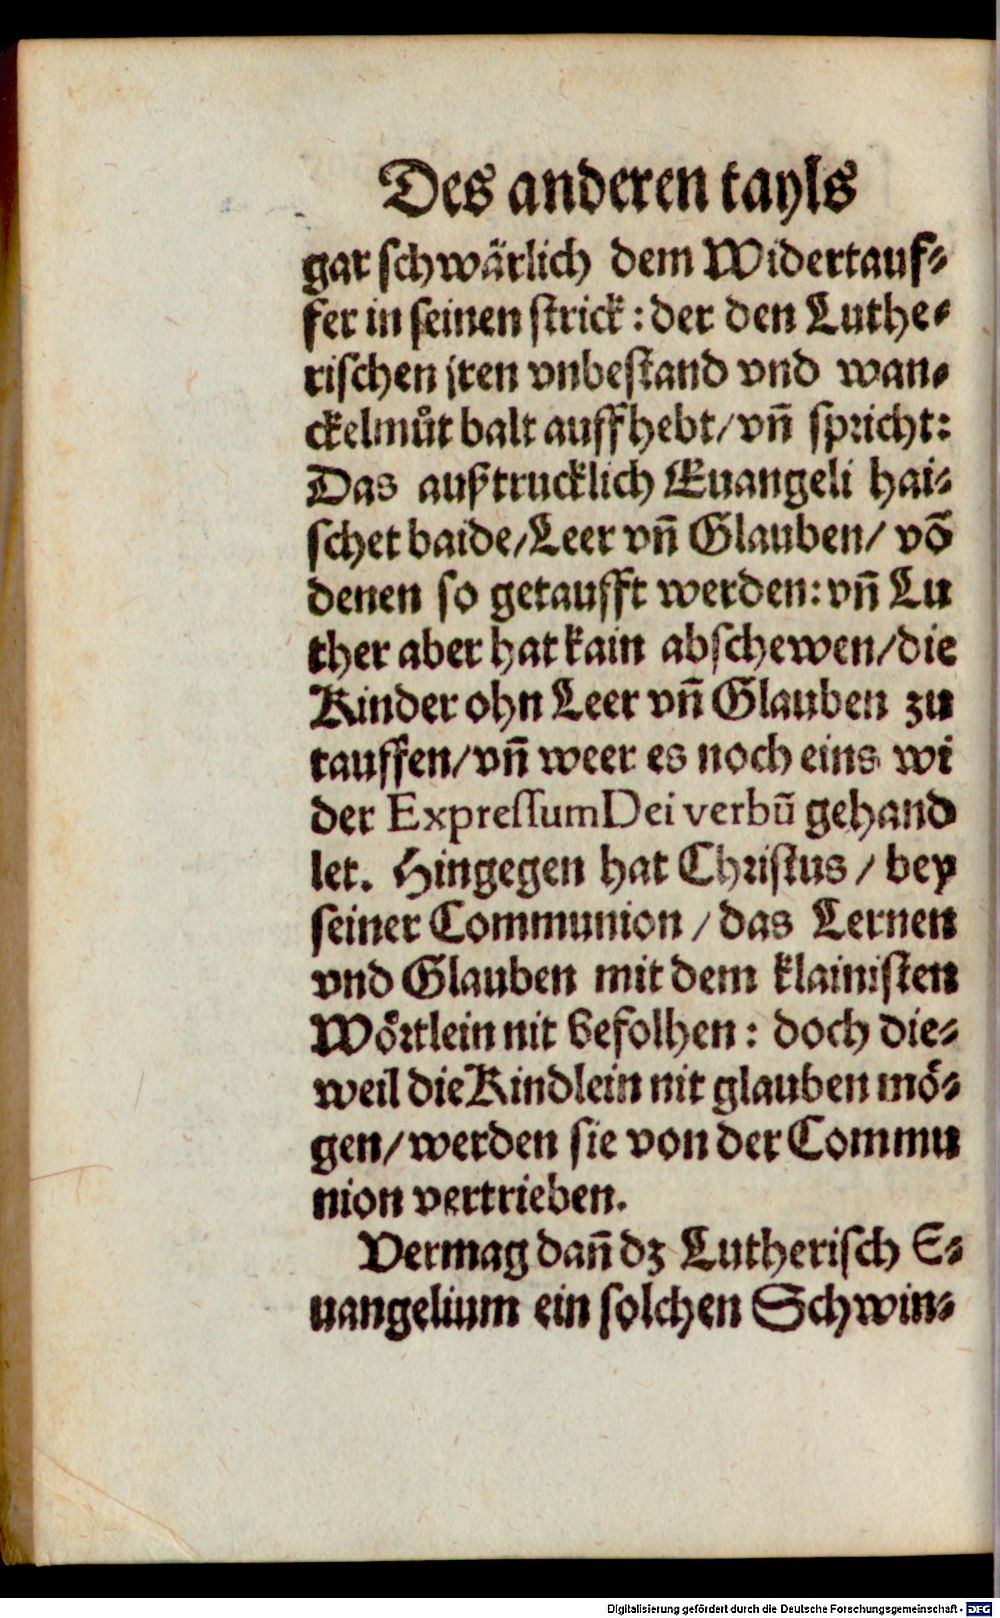 Des anderen tayls
gar schwärlich dem Widertauf-
fer in seinen strick: der den Luthe-
rischen jren vnbestand vnd wan-
ckelmůt balt auffhebt/ vñ spricht:
Das außtrucklich Euangeli hai-
schet baide/ Leer vñ Glauben/ võ
denen so getaufft werden: vñ Lu
ther aber hat kain abschewen/ die
Kinder ohn Leer vñ Glauben zu
tauffen/ vñ weer es noch eins wi
der Expressum Dei verbū gehand
let. Hingegen hat Christus/ bey
seiner Communion/ das Lernen
vnd Glauben mit dem klainisten
Wörtlein nit befolhen: doch die-
weil die Kindlein nit glauben mö-
gen/ werden sie von der Commu
nion vertrieben.
Vermag dañ dz Lutherisch E-
uangelium ein solchen Schwin-
Digitalisierung gefördert durch die Deutsche Forschungsgemeinschaft - DFG